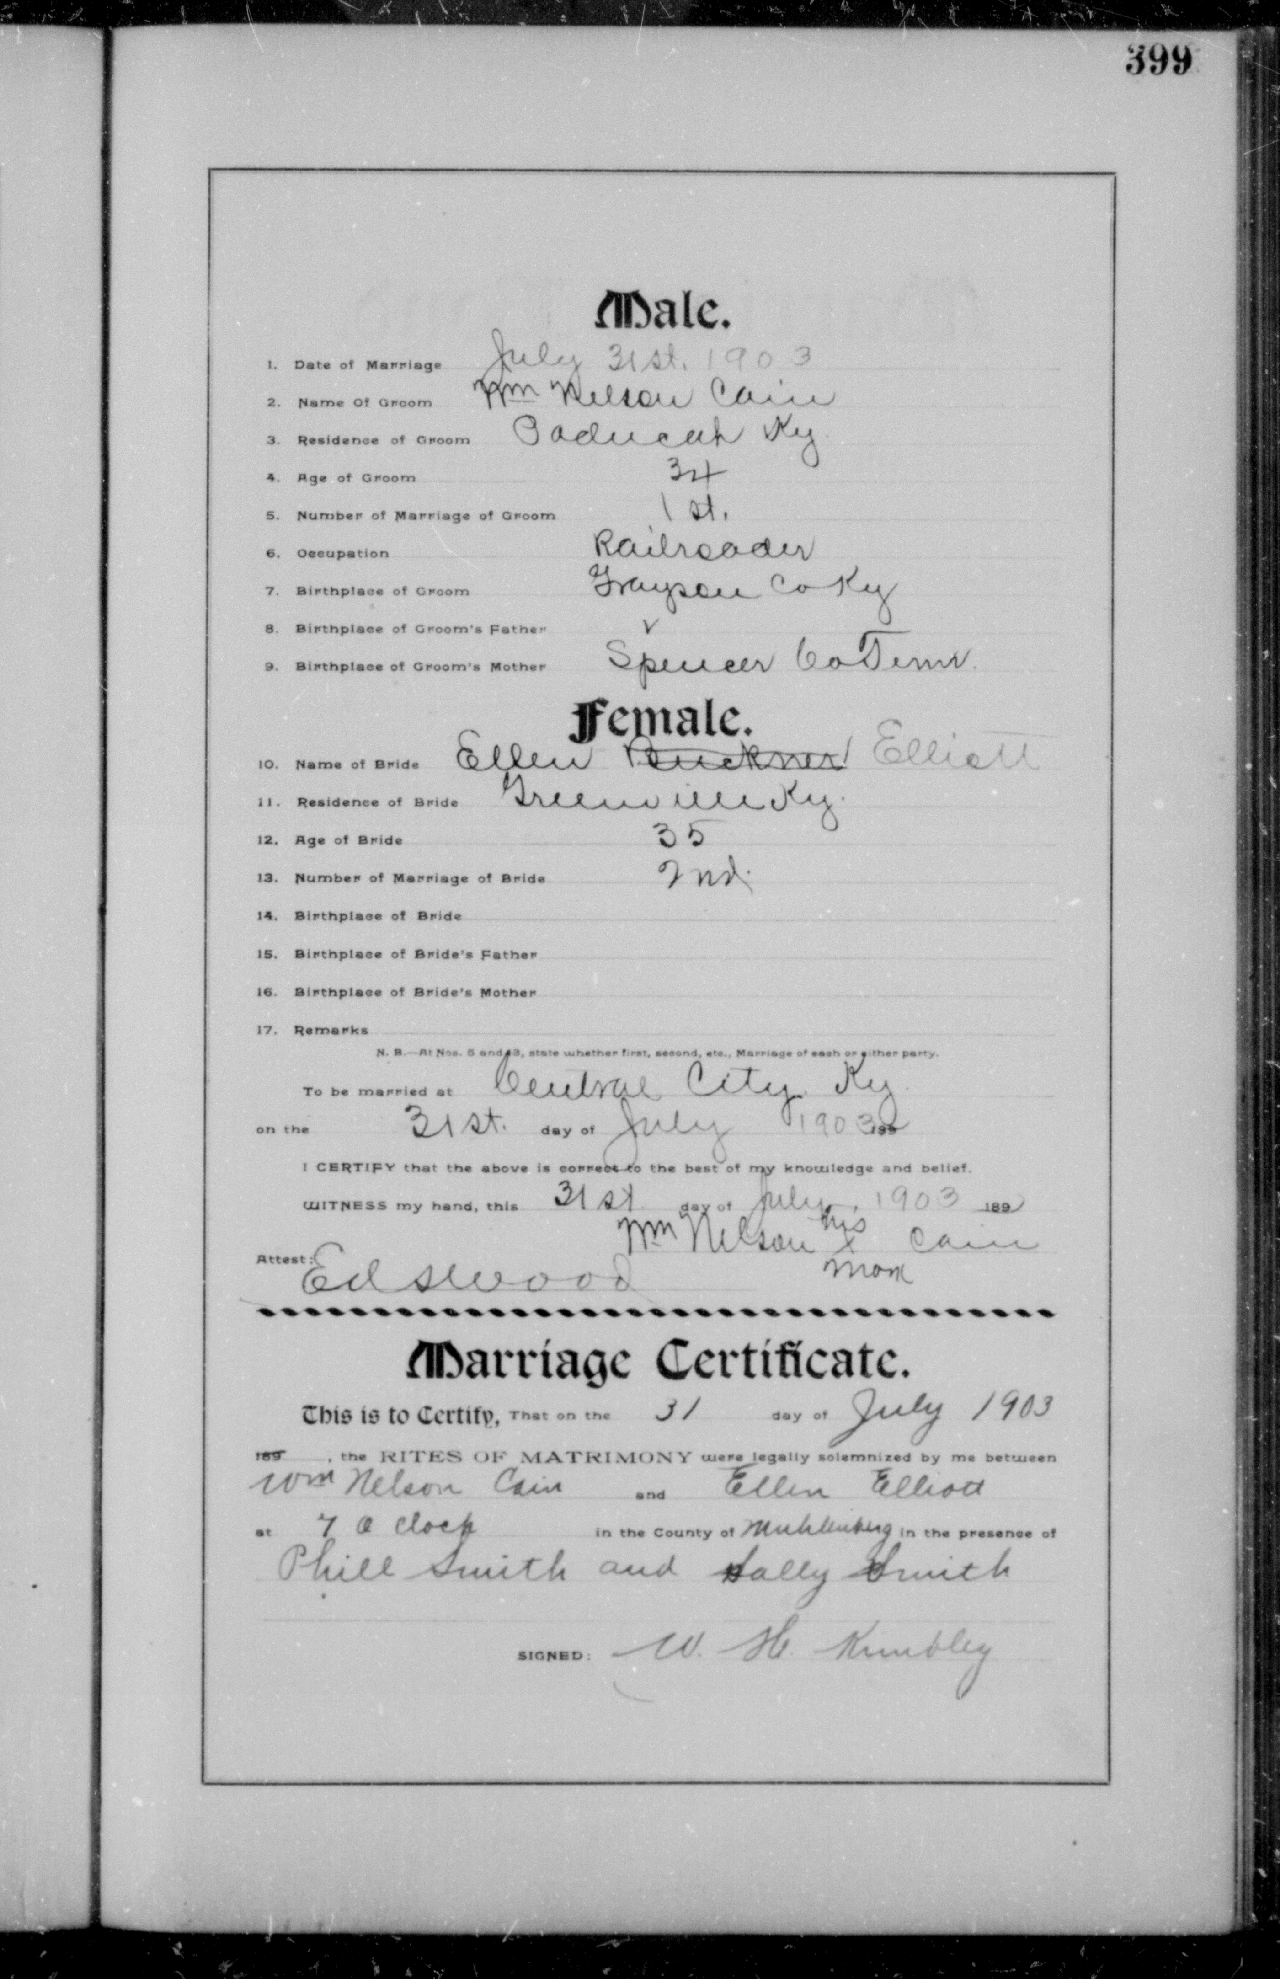 399
Male.
1. Date of Marriage July 31st. 1903
2. Name Of Groom Wm Nelson Cain
3. Residence of Groom Paducah Ky.
4. Age of Groom 34
5. Number of Marriage of Groom 1st.
6. Occupation Railroader
7. Birthplace of Groom Grayson Co Ky
8. Birthplace of Groom's Father
9. Birthplace of Groom's Mother Spencer Co Tenn.
Female.
10. Name of Bride Ellen Buckner Elliott
11. Residence of Bride Greenville Ky.
12. Age of Bride 35
13. Number of Marriage of Bride 2nd.
14. Birthplace of Bride
15. Birthplace of Bride's Father
16. Birthplace of Bride's Mother
17. Remarks
N. B.—At Nos. 5 and 13, state whether first, second, etc., Marriage of each or either party.
To be married at Central City Ky
on the 31st. day of July 1903 189
I CERTIFY that the above is correct to the best of my knowledge and belief.
WITNESS my hand, this 31st day of July, 1903 189
Wm Nelson his x Cain
mark
Attest: Ed S Wood
Marriage Certificate.
This is to Certify, That on the 31 day of July 1903
189 , the RITES OF MATRIMONY were legally solemnized by me between
Wm Nelson Cain and Ellen Elliott
at 7 O Clock in the County of Muhlenberg in the presence of
Phill Smith and Sally Smith
SIGNED: W. H. Kimbley